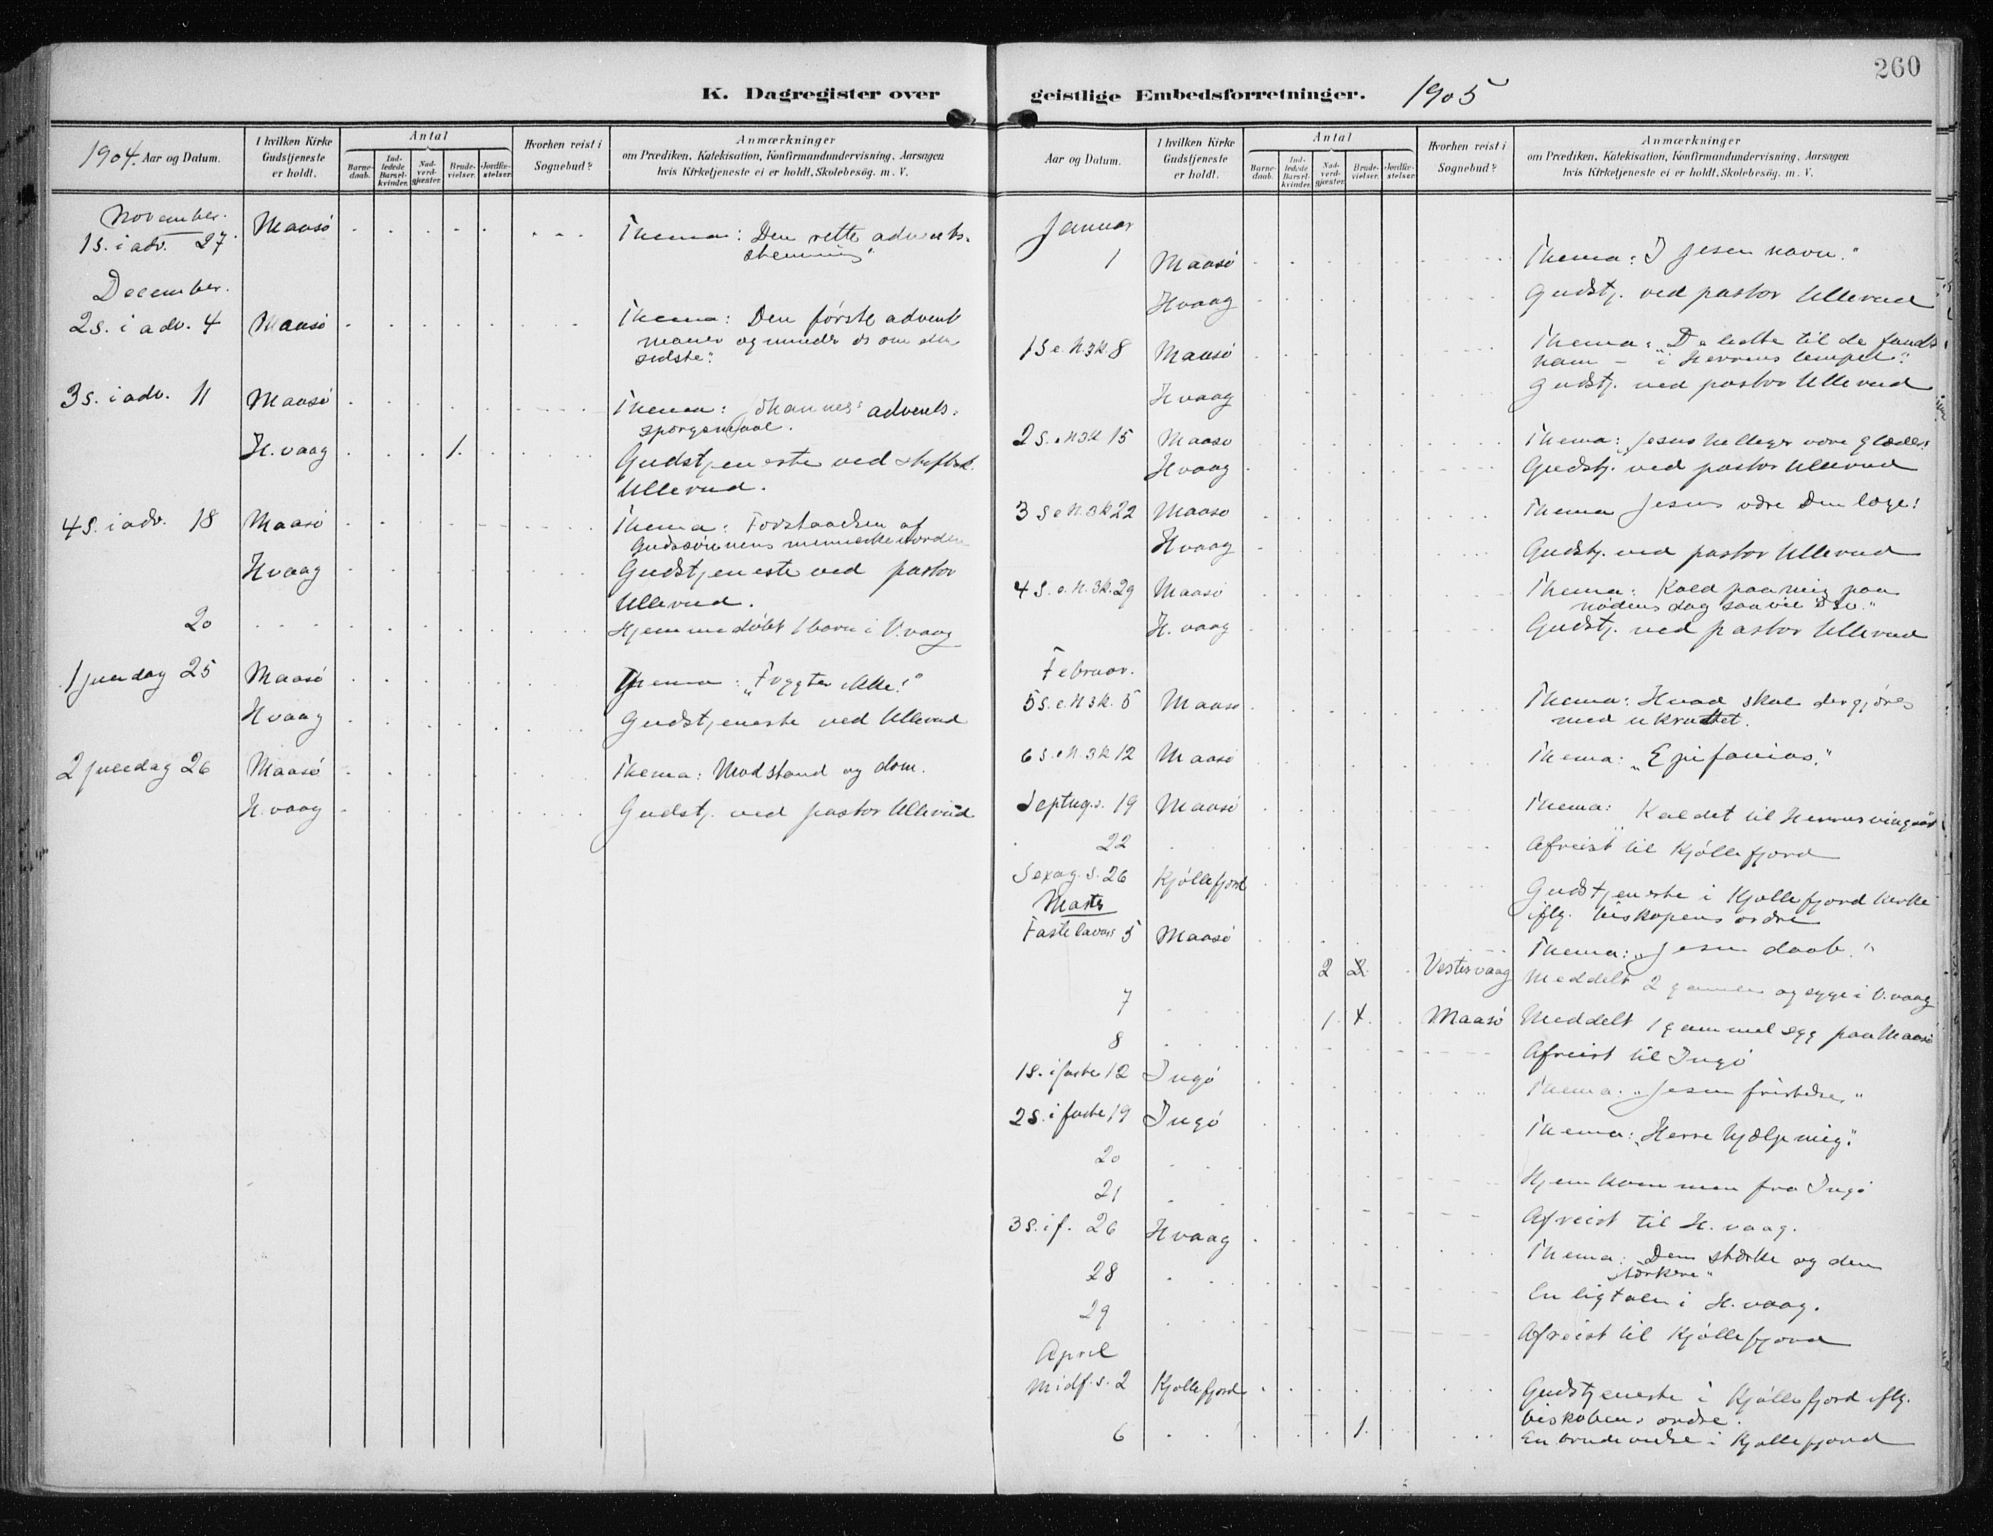 260
K. Dagregister over geistlige Embedsforretninger. 1905
1904. Aar og Datum.
I hvilken Kirke Gudstjeneste er holdt.
Antal
Barne-daab.
Ind-ledede Barsel-kvinder.
Nad-verd-gjester.
Brude-vielser.
Jordfæ-stelser.
Hvorhen reist i Sognebud?
Anmærkninger
om Prædiken, Katekisation, Konfirmandundervisning, Aarsagen
hvis Kirketjeneste ei er holdt, Skolebesøg. m. V.
November.
1 s. i adv. 27 Maasø Thema: Den rette advents-
stemning".
December.
2 s. i adv. 4 Maasø Thema: Den første advent
maner og minder os om den
sidste".
3 s. i adv. 11 Maasø Thema: Johannes' advents-
spørgsmaal.
H.vaag 1. Gudstjeneste ved
Ullerud.
4 s. i adv. 18 Maasø Thema: Forstaaelsen af
Gudssønnens menneskevorden
Hvaag Gudstjeneste ved pastor
Ullerud.
20 Hjemmedøbt 1 barn i V.vaag
1 juledag 25 Maasø Thema: "Frygter ikke!"
Hvaag Gudstjeneste ved Ullerud
2 juledag 26 Maasø Thema: Modstand og dom.
H.vaag Gudstj. ved pastor Ullerud
Aar og Datum.
I hvilken Kirke Gudstjeneste er holdt.
Antal
Barne-daab.
Ind-ledede Barsel-kvinder.
Nad-verd-gjester.
Brude-vielser.
Jordfæ-stelser.
Hvorhen reist i Sognebud?
Anmærkninger
om Prædiken, Katekisation, Konfirmandundervisning, Aarsagen
hvis Kirketjeneste ei er holdt, Skolebesøg. m. V.
Januar
1 Maasø Thema: I Jesu navn."
Hvaag Gudstj. ved pastor Ullerud
1 S e. H 3 K 8 Maasø Thema: "De ledte til de fandt
ham – i Herrens tempel".
Hvaag Gudstj. ved pastor Ullerud
2 S. e H 3 K 15 Maasø Thema: "Jesus helliger vore glæder."
Hvaag Gudstj. ved pastor Ullerud
3 S e H. 3 K 22 Maasø Thema Jesus vore læge!
Hvaag Gudstj. ved pastor Ullerud
4 S. e. H. 3 K. 29 Maasø Thema: Kald paa mig paa
nødens dag saa vil "
H. vaag Gudstj. ved pastor Ullerud
Februar.
5 S. e. H 3 K. 5 Maasø Thema: Hvad skal der gjøres
med ukruttet.
6 S. e H 3 K 12 Maasø Thema: "Epifanias."
Septug. s. 19 Maasø Thema: Kaldet til Herrens vingaard
22 Afreist til Kjøllefjord
Sexag. s. 26 Kjøllefjord Gudstjeneste i Kjøllefjord kirke
iflg. biskopens ordre
Marts
Fastelavns 5 Maasø Thema: "Jesu daab."
7 2 2. Vestervaag Meddelt 2 gamle og syge i V.vaag
8 1. 1 Maasø Meddelt 1 gammel syg paa Maasø
Afreist til Ingø
1 S. i faste 12 Ingø Thema: "Jesu fristelse"
2 S. i faste 19 Ingø Thema: "Herre hjælp mig".
20 Hjemkommen fra Ingø
21 Afreist til H. vaag.
3 S. i f. 26 Hvaag Thema: Den stærke og den
stærkere"
28 En ligtale i H. vaag.
29 Afreist til Kjøllefjord
April
Midf. s. 2 Kjøllefjord Gudstjeneste i Kjøllefjord iflg.
biskobens ordre.
6 1. En brudevielse i Kjøllefjord